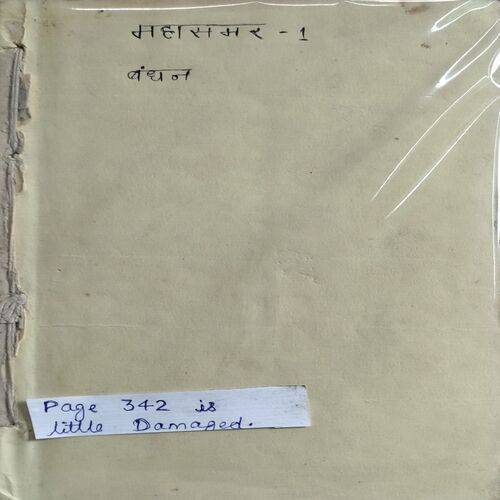 महासमर - 1
बंधन
Page 342 is
little Damaged.